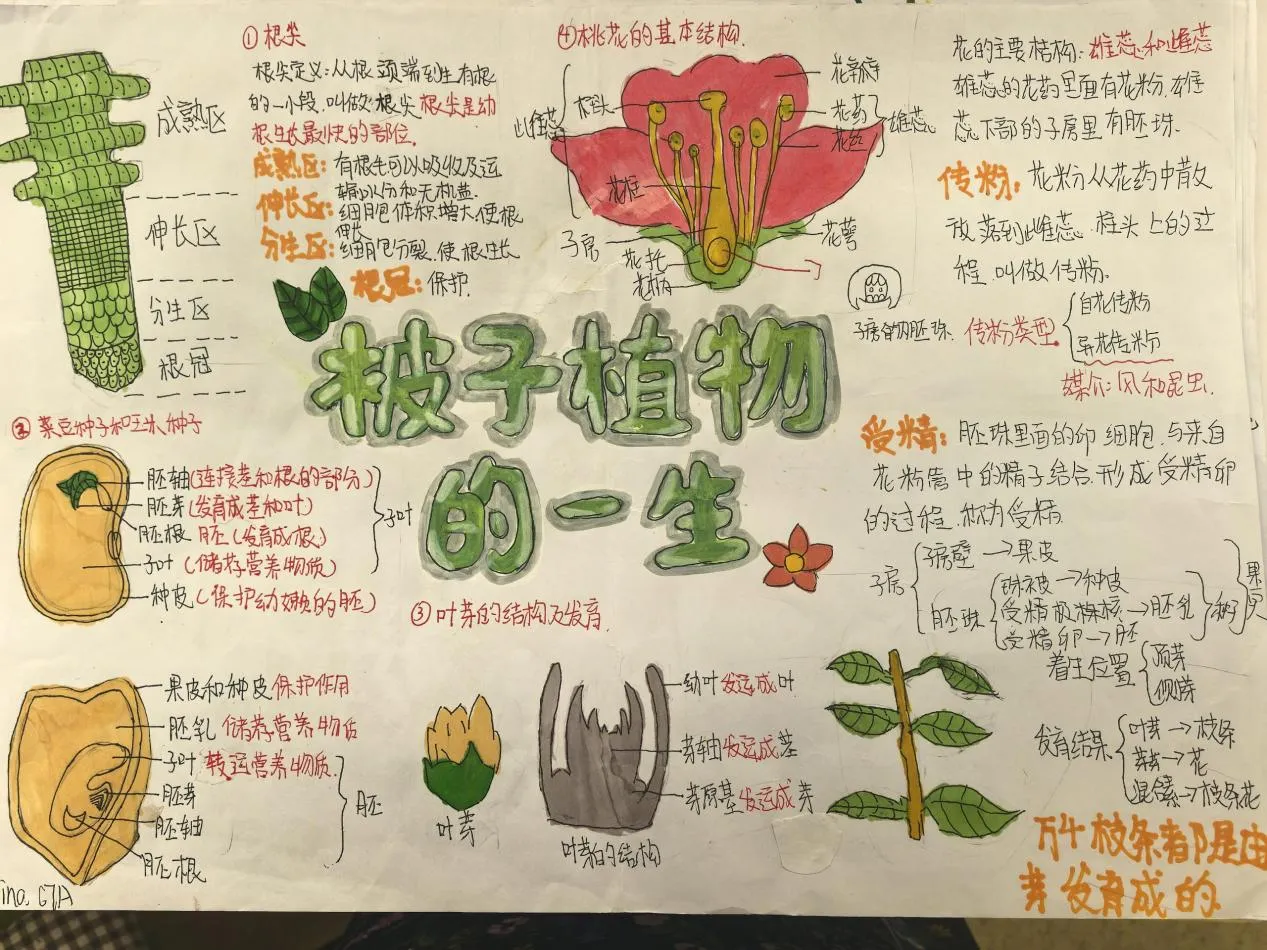 ①根尖
根尖定义:从根顶端到生有根
的一小段,叫做根尖 根尖是幼
根生长最快的部位.
成熟区: 有根毛可以吸收及运
输水分和无机盐.
伸长区: 细胞体积增大,使根
伸长
分生区: 细胞分裂,使根生长
根冠: 保护.
成熟区
伸长区
分生区
根冠
④桃花的基本结构.
雌蕊
柱头
花柱
子房
花托
花柄
花药
花丝
雄蕊
花萼
子房
花的主要结构:雄蕊和雌蕊
雄蕊的花药里面有花粉.雄
蕊下部的子房里有胚珠.
传粉: 花粉从花药中散
放落到雌蕊.柱头上的过
程,叫做传粉.
传粉类型
自花传粉
异花传粉
媒介:风和昆虫.
受精: 胚珠里面的卵细胞,与来自
花粉管中的精子结合.形成受精卵
的过程,称为受精
子房
子房壁→果皮
胚珠
珠被→种皮
→胚乳
受精卵→胚
种子
果实
被子植物
的一生
②菜豆种子和玉米种子
胚轴(连接茎和根的部分)
胚芽(发育成茎和叶)
胚根 胚(发育成根)
子叶(储存营养物质)
种皮(保护幼嫩的胚)
子叶
果皮和种皮保护作用
胚乳 储存营养物质
子叶 转运营养物质.
胚芽
胚轴
胚根
胚
③叶芽的结构及发育
叶芽
叶芽的结构
幼叶发运成叶
芽轴发运成茎
芽原基发运成芽
着生位置
顶芽
侧芽
发育结果
叶芽→枝条
→花
→枝条花
万千枝条都是由
芽发育成的.